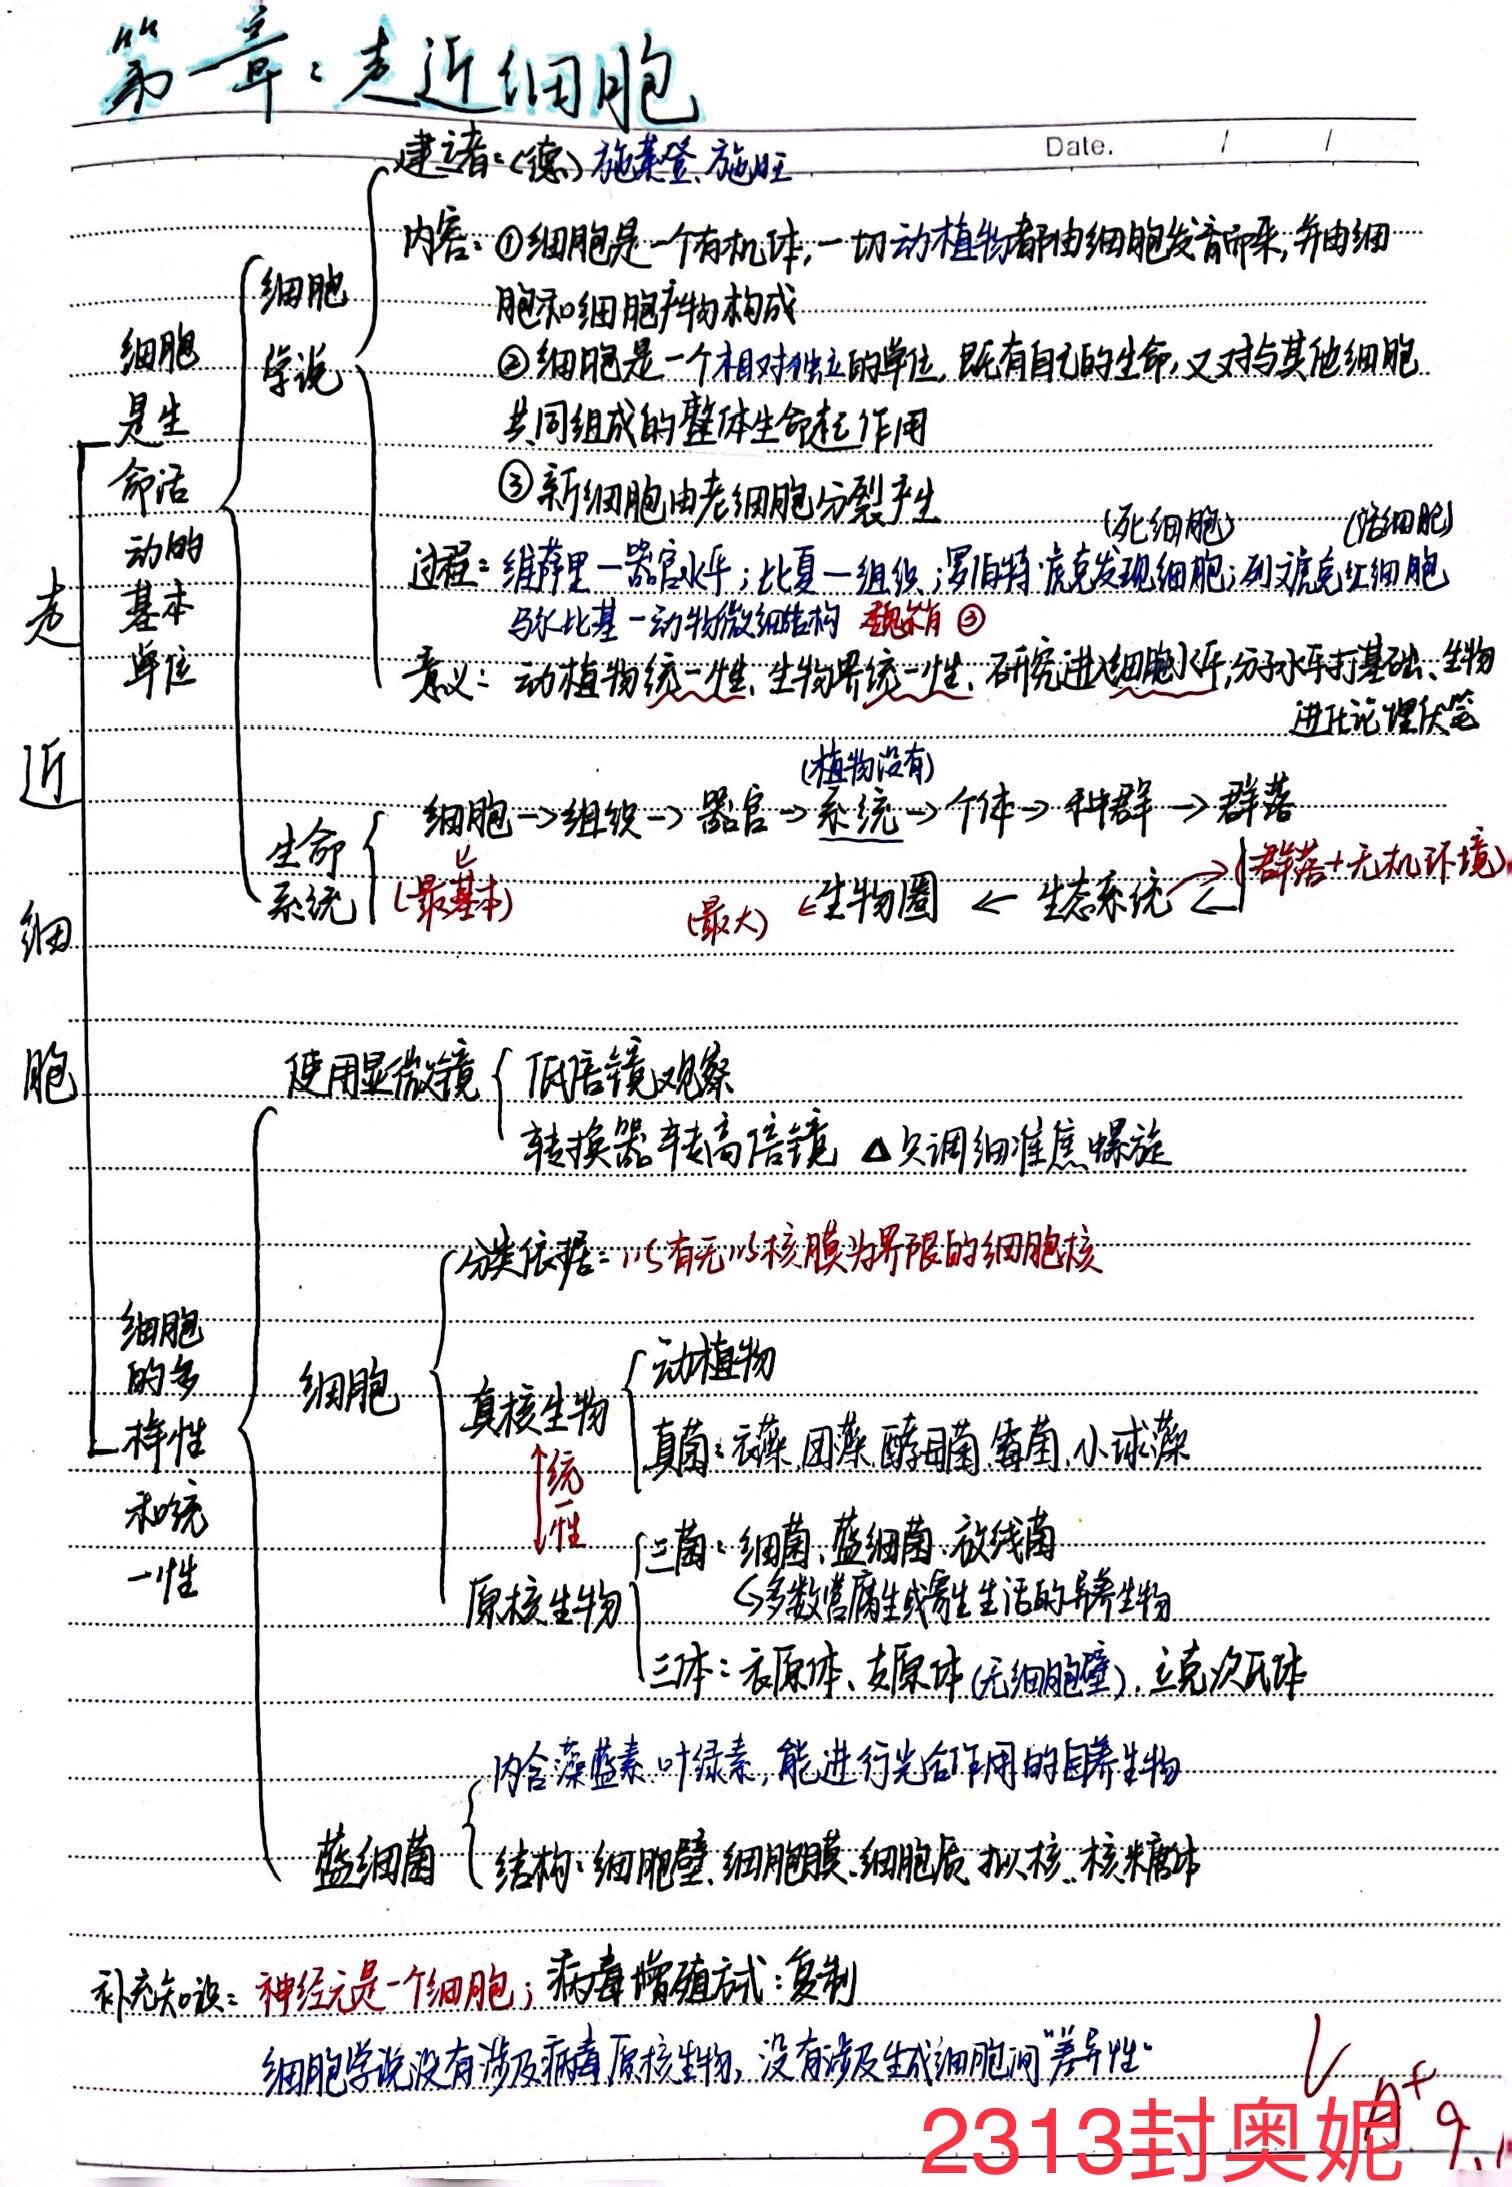 第一章：走近细胞
Date. / /
走近细胞
细胞是生命活动的基本单位
细胞学说
建立者：(德) 施莱登、施旺
内容：①细胞是一个有机体，一切动植物都由细胞发育而来，并由细
胞和细胞产物构成
②细胞是一个相对独立的单位，既有自己的生命，又对与其他细胞
共同组成的整体生命起作用
③新细胞由老细胞分裂产生
(死细胞) (活细胞)
过程：维萨里—器官水平；比夏—组织；罗伯特·虎克发现细胞；列文虎克红细胞
马尔比基—动物微细结构 魏尔肖③
意义：动植物统一性、生物界统一性、研究进入细胞水平，分子水平打基础、生物
进化论埋伏笔
生命系统
(植物没有)
细胞→组织→器官→系统→个体→种群→群落
(最基本) (最大) ←生物圈 ← 生态系统 ← (群落+无机环境)
细胞的多样性和统一性
使用显微镜
低倍镜观察
转换器转高倍镜 △只调细准焦螺旋
细胞
分类依据：以有无以核膜为界限的细胞核
真核生物
动植物
真菌：衣藻、团藻、酵母菌、霉菌、小球藻
统一性
原核生物
三菌：细菌、蓝细菌、放线菌
↳多数营腐生或寄生生活的异养生物
三体：衣原体、支原体(无细胞壁)、立克次氏体
蓝细菌
内含藻蓝素、叶绿素，能进行光合作用的自养生物
结构：细胞壁、细胞膜、细胞质、拟核、核糖体
补充知识：神经元是一个细胞；病毒增殖方式：复制
细胞学说没有涉及病毒原核生物，没有涉及生成细胞间“差异性”
A+
9.1
2313封奥妮